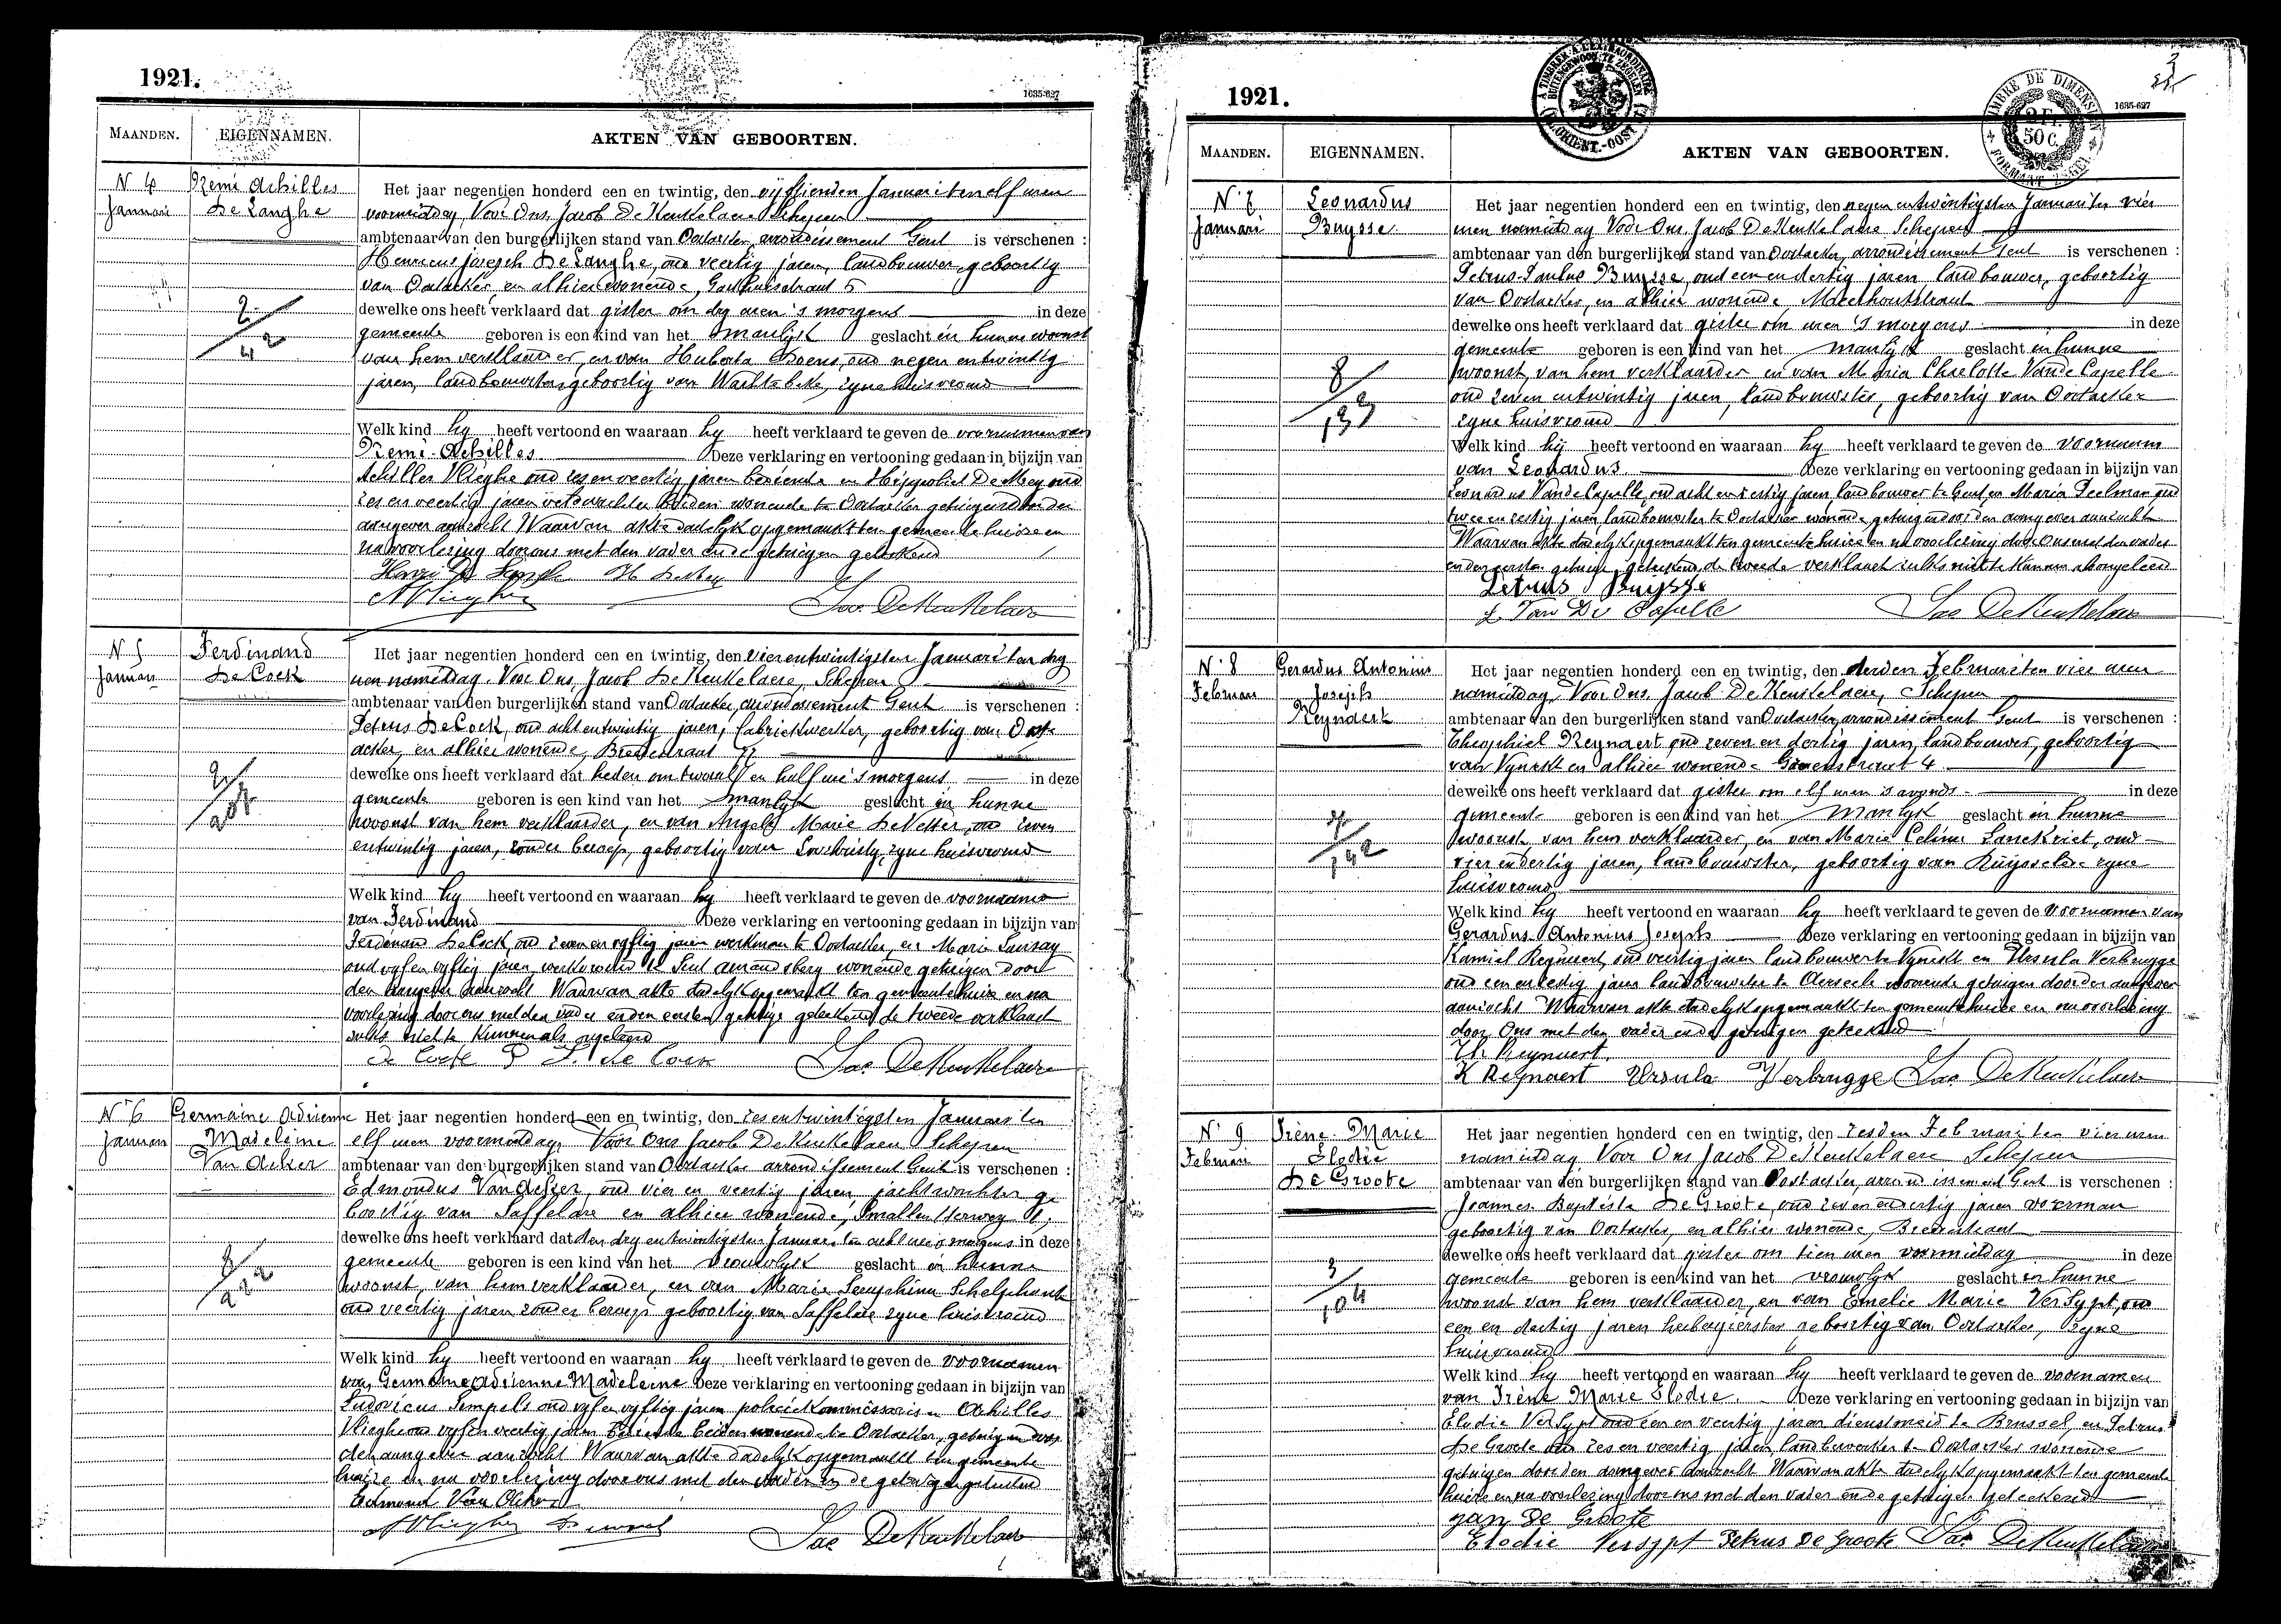 1921.
1635-627
MAANDEN. EIGENNAMEN. AKTEN VAN GEBOORTEN.
N 4 Remi Achilles
Januari De Langhe
Het jaar negentien honderd een en twintig, den vijftienden Januari ten elf uren
voormiddag Voor Ons, Jacob De Keukelaere Schepen
ambtenaar van den burgerlijken stand van Oostacker, arrondissement Gent is verschenen :
Henricus Joseph De Langhe, oud veertig jaren, landbouwer, geboortig
van Oostacker, en alhier wonende, 5
dewelke ons heeft verklaard dat gister om dry uren 's morgens in deze
gemeente geboren is een kind van het manlijk geslacht in hunne woonst
van hem verklaarder, en van Huberta oud negen entwintig
jaren, landbouwster geboortig van Wachtebeke, zyne huisvrouw
Welk kind hy heeft vertoond en waaraan hy heeft verklaard te geven de voornamen van
Remi-Achilles Deze verklaring en vertooning gedaan in bijzijn van
Achilles Vlieghe oud zes en veertig jaren bediende en Hippoliet De Mey oud
zes en veertig jaren veldwachter beiden wonende te Oostacker getuigen door den
aangever aanzocht Waarvan akte dadelyk opgemaakt ten gemeentehuize en
na voorlezing door ons met den vader en de getuigen geteekend
A Vlieghe Jac. De Keukelaere
N 5 Ferdinand
Januari De Cock
Het jaar negentien honderd een en twintig, den vierentwintigsten Januari ten dry
uren namiddag. Voor Ons, Jacob De Keukelaere, Schepen
ambtenaar van den burgerlijken stand van Oostacker, arrondissement Gent is verschenen :
Petrus De Cock, oud acht entwintig jaren, fabriekwerker, geboortig van Oost-
acker, en alhier wonende, Breestraat
dewelke ons heeft verklaard dat heden om twaalf en half ure 's morgens in deze
gemeente geboren is een kind van het manlyk geslacht in hunne
woonst van hem verklaarder, en van Marie oud zeven
entwintig jaren, zonder beroep, geboortig van zyne huisvrouw
Welk kind hy heeft vertoond en waaraan hy heeft verklaard te geven de voornaam
van Ferdinand Deze verklaring en vertooning gedaan in bijzijn van
Ferdinand De Cock, oud zeven en vyftig jaren werkman te Oostacker, en Marie
oud vyf en vyftig jaren, werkvrouw te Sint Amandsberg wonende getuigen door
den aangever aanzocht Waarvan akte dadelyk opgemaakt ten gemeentehuize en na
voorlezing door ons met den vader en den eersten getuige geteekend de tweede verklaart
zulks niet te kunnen als ongeleerd
De Cock P F. de Cock Jac. De Keukelaere
N 6 Germaine Adrienne
Januari Madeleine
Van Acker
Het jaar negentien honderd een en twintig, den zesentwintigsten Januari ten
elf uren voormiddag. Voor Ons Jacob De Keukelaere Schepen
ambtenaar van den burgerlijken stand van Oostacker arrondissement Gent is verschenen :
Edmondus Van Acker, oud vier en veertig jaren jachtwachter ge-
boortig van Saffelare en alhier wonende,
dewelke ons heeft verklaard dat den dry entwintigsten Januari ten acht ure 's morgens in deze
gemeente geboren is een kind van het vrouwlyk geslacht in hunne
woonst, van hem verklaarder, en van Marie Seraphina Schelphout
oud veertig jaren zonder beroep geboortig van Saffelare zyne huisvrouw
Welk kind hy heeft vertoond en waaraan hy heeft verklaard te geven de voornamen
van Germaine Adrienne Madeleine Deze verklaring en vertooning gedaan in bijzijn van
Ludovicus oud vyf en vyftig jaren policiekommissaris en Achilles
Vlieghe oud vyf en veertig jaren bediende beiden wonende te Oostacker, getuigen door
den aangever aanzocht Waarvan akte dadelyk opgemaakt ten gemeente
huize en na voorlezing door ons met den vader en de getuigen geteekend
Edmond Van Acker
A Vlieghe Jac De Keukelaere
1921.
3
1635-627
TIMBRE DE DIMENSION
2 Fr.
50 C.
FORMAAT ZEGEL
MAANDEN. EIGENNAMEN. AKTEN VAN GEBOORTEN.
N. 7 Leonardus
Januari Buysse
Het jaar negentien honderd een en twintig, den negen entwintigsten Januari ten vier
uren namiddag Voor Ons Jacob De Keukelaere Schepen
ambtenaar van den burgerlijken stand van Oostacker, arrondissement Gent is verschenen :
Petrus-Paulus Buysse, oud een en dertig jaren, landbouwer, geboortig
van Oostacker, en alhier wonende
dewelke ons heeft verklaard dat gister om uren 's morgens in deze
gemeente geboren is een kind van het manlyk geslacht in hunne
woonst, van hem verklaarder en van Maria Charlotte Van de Capelle
oud zeven entwintig jaren, landbouwster, geboortig van Oostacker
zyne huisvrouw
Welk kind hij heeft vertoond en waaraan hy heeft verklaard te geven de voornaam
van Leonardus Deze verklaring en vertooning gedaan in bijzijn van
Leonardus Van de Capelle, oud acht en zestig jaren, landbouwer te Gent en Maria Peelman oud
twee en zestig jaren landbouwster te Oostacker wonende getuigen door den aangever aanzocht
Waarvan akte dadelyk opgemaakt ten gemeentehuize en na voorlezing door Ons met den vader
en den eersten getuige geteekend, de tweede verklaart zulks niet te kunnen als ongeleerd
Petrus Buysse
L Van De Capelle Jac De Keukelaere
N. 8 Gerardus Antonius
Februari Joseph
Reynaert
Het jaar negentien honderd een en twintig, den derden Februari ten vier uren
namiddag Voor Ons Jacob De Keukelaere, Schepen
ambtenaar van den burgerlijken stand van Oostacker, arrondissement Gent is verschenen :
Theophiel Reynaert oud zeven en dertig jaren, landbouwer, geboortig
van Vynckt en alhier wonende Groenstraat 4
dewelke ons heeft verklaard dat gister om elf uren 's avonds in deze
gemeente geboren is een kind van het manlyk geslacht in hunne
woonst, van hem verklaarder, en van Marie Celine Lanckriet, oud
vier en dertig jaren, landbouwster, geboortig van Ruysselede zyne
huisvrouw
Welk kind hy heeft vertoond en waaraan hy heeft verklaard te geven de voornamen van
Gerardus Antonius Joseph Deze verklaring en vertooning gedaan in bijzijn van
Kamiel Reynaert, oud veertig jaren landbouwer te Vynckt en Ursula Verbrugge
oud een en zestig jaren landbouwster te Aerseele wonende getuigen door den aangever
aanzocht Waarvan akte dadelyk opgemaakt ten gemeentehuize en na voorlezing
door Ons met den vader en de getuigen geteekend
Th. Reynaert.
K Reynaert Ursula Verbrugge Jac De Keukelaere
N. 9 Irène Marie
Februari Elodie
De Groote
Het jaar negentien honderd een en twintig, den zesden Februari ten vier uren
namiddag Voor Ons Jacob De Keukelaere Schepen
ambtenaar van den burgerlijken stand van Oostacker, arrondissement Gent is verschenen :
Joannes Baptista De Groote, oud zeven en dertig jaren voerman
geboortig van Oostacker, en alhier wonende, Breestraat
dewelke ons heeft verklaard dat gister om tien uren voormiddag in deze
gemeente geboren is een kind van het vrouwlyk geslacht in hunne
woonst van hem verklaarder, en van Emelie Marie Versypt, oud
een en dertig jaren herbergierster geboortig van Oostacker, zyne
huisvrouw
Welk kind hy heeft vertoond en waaraan hy heeft verklaard te geven de voornamen
van Irène Marie Elodie. Deze verklaring en vertooning gedaan in bijzijn van
Elodie Versypt oud een en veertig jaren dienstmeid te Brussel, en Petrus
De Groote oud zes en veertig jaren, landbewerker te Oostacker wonende
getuigen door den aangever aanzocht Waarvan akte dadelyk opgemaakt ten gemeente
huize en na voorlezing door ons met den vader en de getuigen geteekend
Jan De Groote
Elodie Versypt Petrus De Groote Jac De Keukelaere